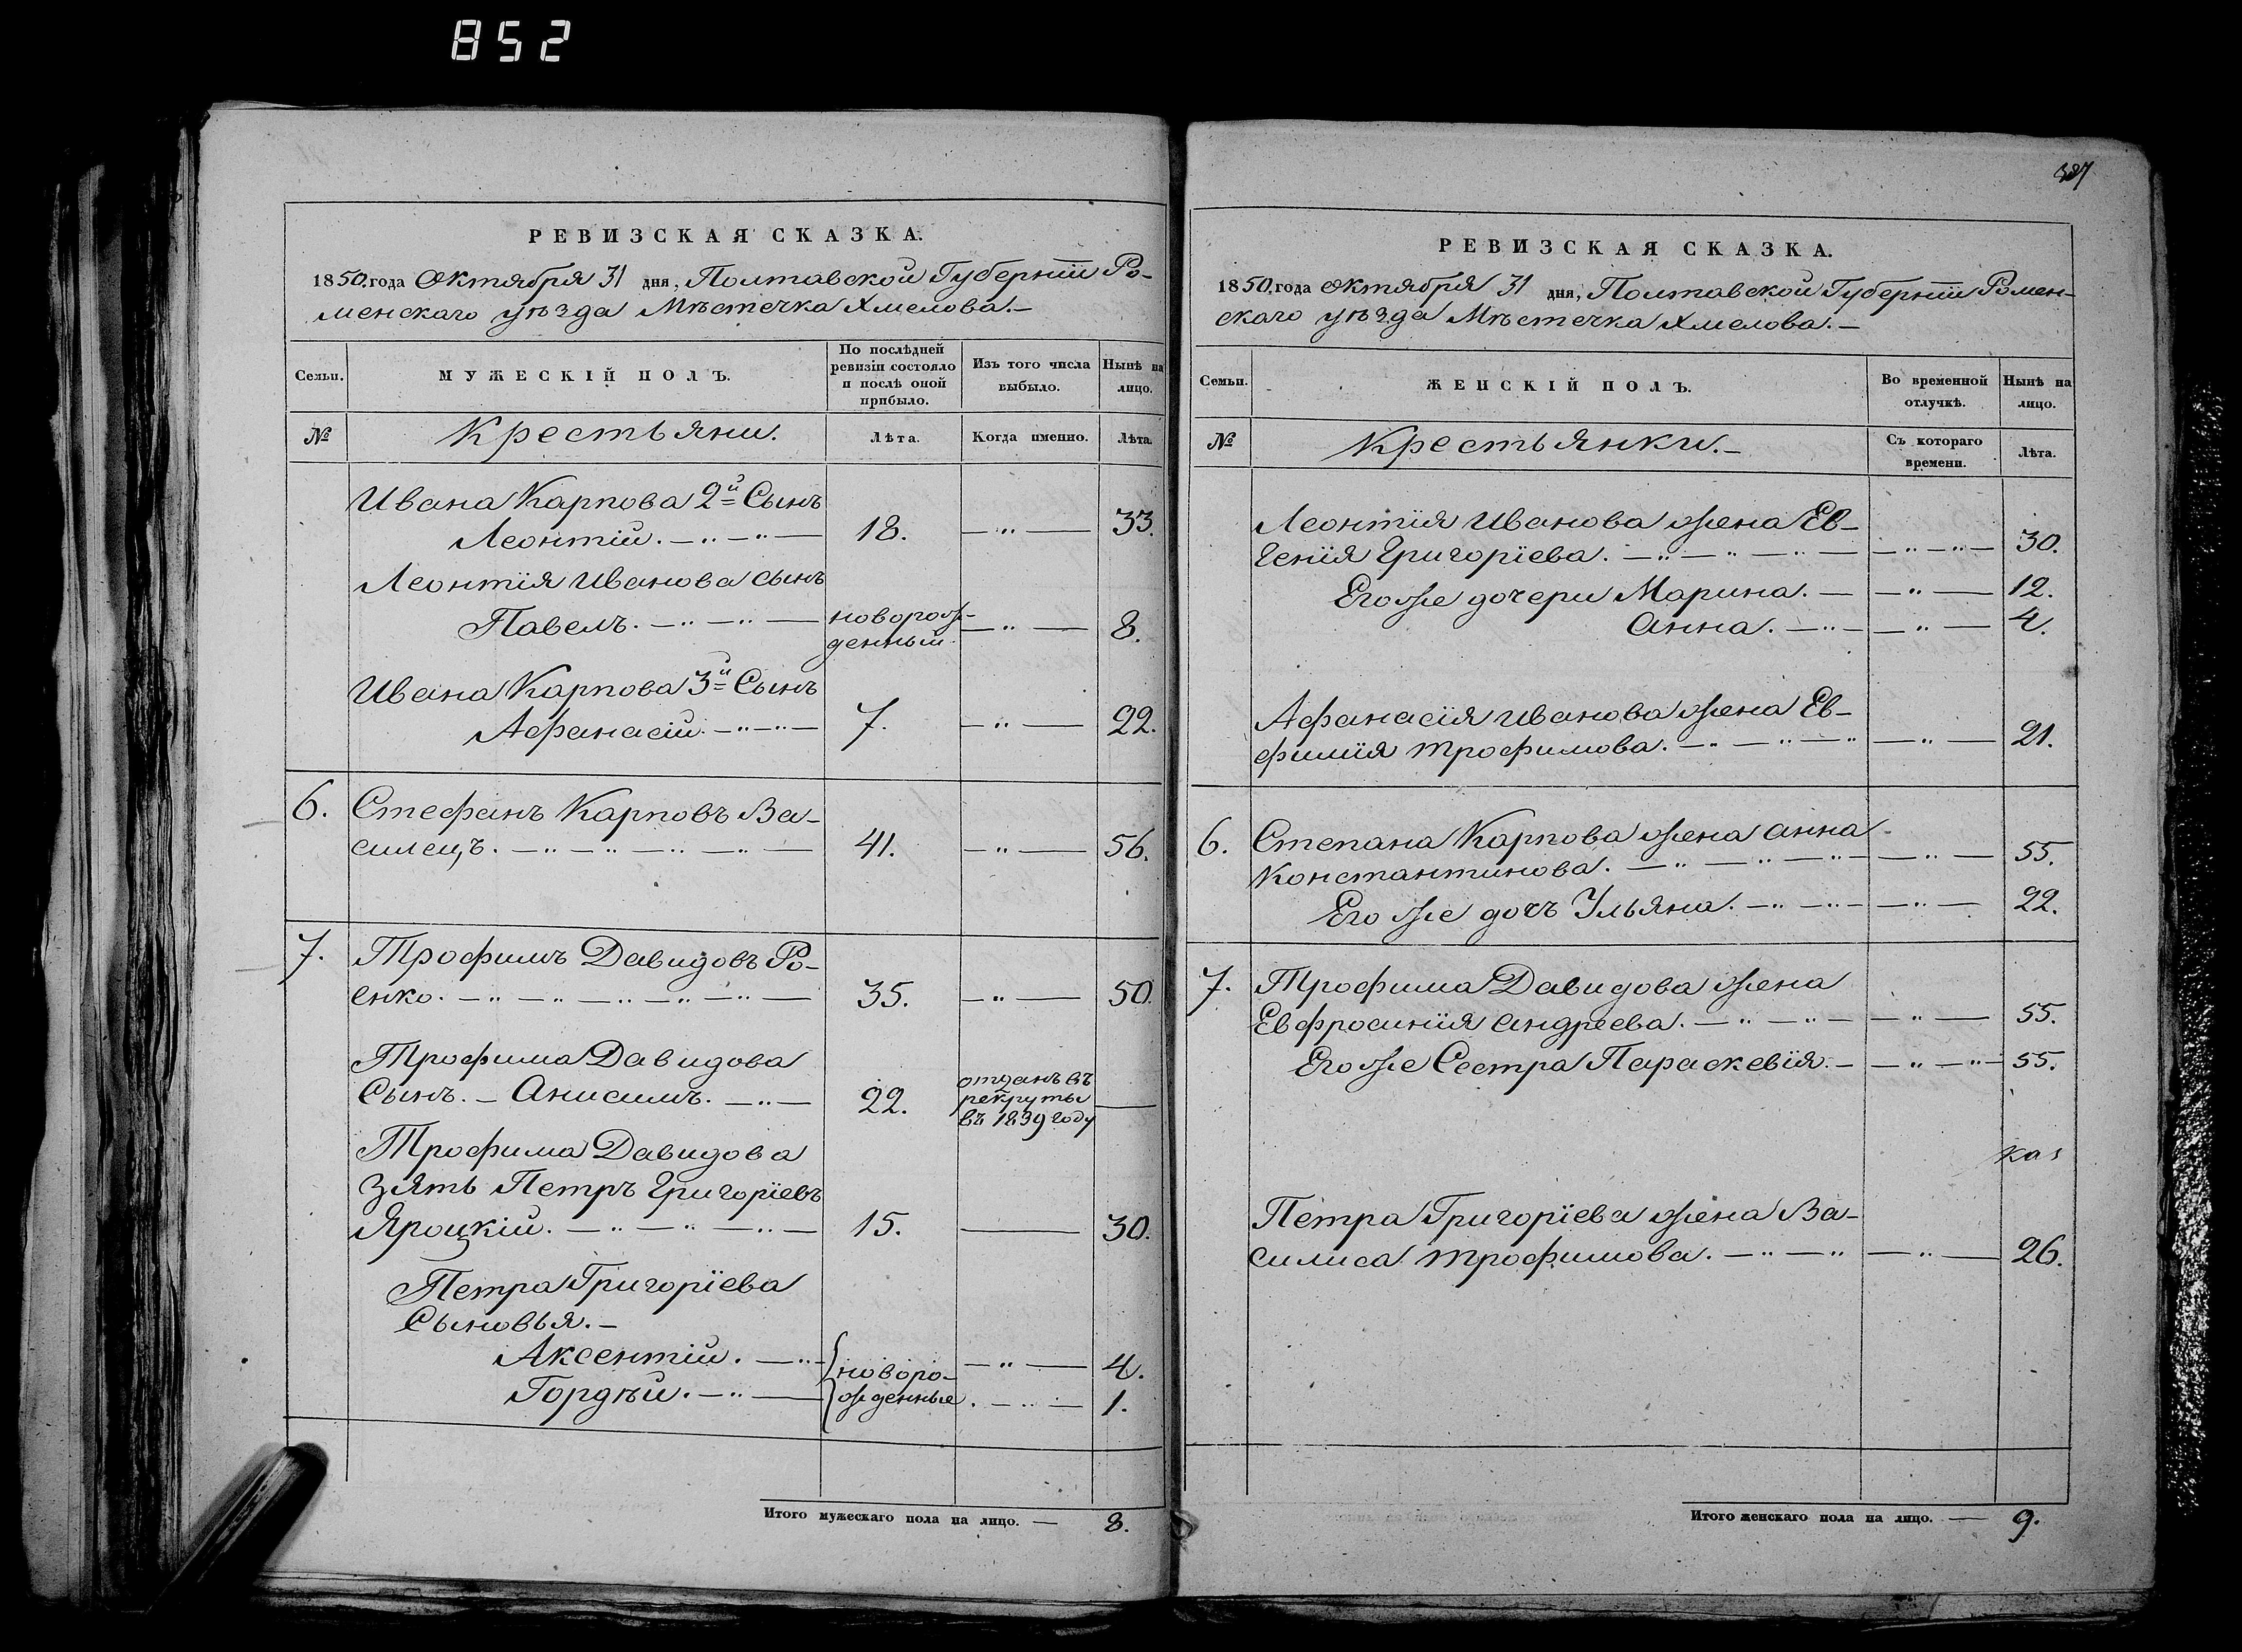 852
РЕВИЗСКАЯ СКАЗКА.
1850.года Октября 31 дня, Полтавской Губерніи Ро-
менскаго уѣзда Мѣстечка Хмелова.—
Семьи.
МУЖЕСКІЙ ПОЛЪ.
По послѣдней ревизіи состояло и послѣ оной прибыло.
Изъ того числа выбыло.
Нынѣ на лицо.
№
Крестьяни.
Лѣта.
Когда именно.
Лѣта.
Ивана Карпова 2й Сынъ
Леонтій. — 18. — 33.
Леонтія Иванова сынъ
Павелъ. — новорож-
денный. — 8.
Ивана Карпова 3й Сынъ
Афанасій. — 7. — 22.
6. Стефанъ Карповъ Ва-
силецъ. — 41. — 56.
7. Трофимъ Давидовъ Ро-
енко. — 35. — 50.
Трофима Давидова
Сынъ. — Анисимъ. — 22. отданъ въ
рекруты
въ 1839 году —
Трофима Давидова
зять Петръ Григоріевъ
Яроцкій. — 15. — 30.
Петра Григоріева
Сыновья. —
Аксентій. — новоро- — 4.
Гордѣй. — жденные. — 1.
Итого мужескаго пола на лицо. — 8.
387
РЕВИЗСКАЯ СКАЗКА.
1850.года Октября 31 дня, Полтавской Губерніи Ромен-
скаго уѣзда Мѣстечка Хмелова. —
Семьи.
ЖЕНСКІЙ ПОЛЪ.
Во временной отлучкѣ.
Нынѣ на лицо.
№
Крестьянки. —
Съ котораго времени.
Лѣта.
Леонтія Иванова жена Ев-
генія Григоріева. — 30.
Его же дочери Марина. — 12.
Анна. — 4.
Афанасія Иванова жена Ев-
фимія Трофимова. — 21.
6. Степана Карпова жена Анна
Константинова. — 55.
Его же дочъ Ульяна. — 22.
7. Трофима Давидова жена
Евфросинія Андреева. — 55.
Его же Сестра Параскевія. — 55.
Петра Григоріева жена Ва-
силиса Трофимова. — 26.
Итого женскаго пола на лицо. — 9.